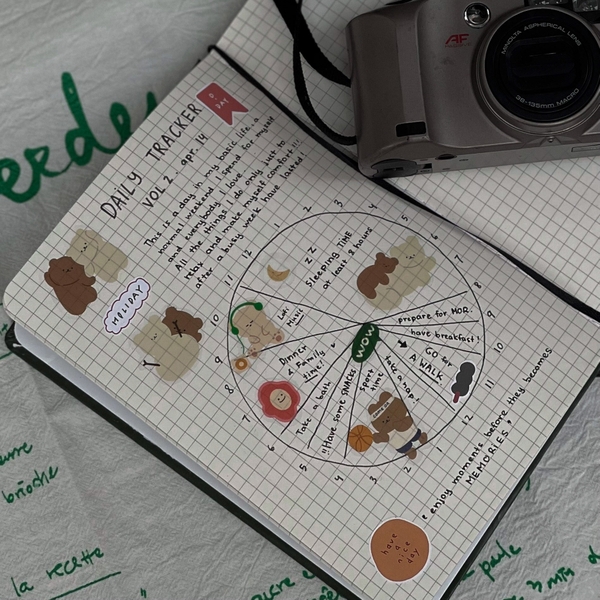 DAILY TRACKER
D DAY
VOL 2 . apr. 14
This is a day in my basic life, a
normal weekend I spend for myself
and everybody I love
All the things I do only just to
relax and make myself comfort!!!
after a busy week have lasted!
HOLIDAY
11 12 1 2 3 4 5 6
z z
Sleeping TIME
at least 8 hours
10
Music
9
8
Dinner
& Family
time!
7
Take a bath
6
"Have some SNACKS
5
4
sport
time
3
2
take a nap!
1
WOW
prepare for MOR.
9
have breakfast!
10
GO for
A WALK
11
12
enjoy moments before they becomes
MEMORIES,
have
a
nice
day
AF
MINOLTA ASPHERICAL LENS
38-135mm MACRO
brioche
la recette